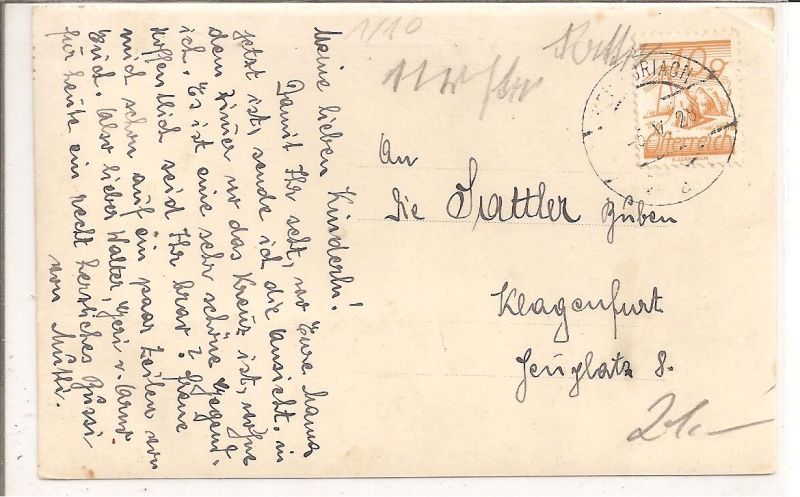 Meine lieben Kinderln!
Damit Ihr seht, wo Eure Mama
jetzt ist, sende ich die Ansicht. in
dem Zimer wo das Kreuz ist, wohne
ich. Es ist eine sehr schöne Gegend.
Hoffentlich seid Ihr brav? Freue
mich schon auf ein paar Zeilen von
Euch. Also lieber Walter, Geri u. Arno
für heute ein recht herzliches Bussi
von Mutti.
1/10
10g
BRIACH
-5.V.28
Österreich
An
die Sattler Buben
Klagenfurt
Heuplatz 8.
21.-